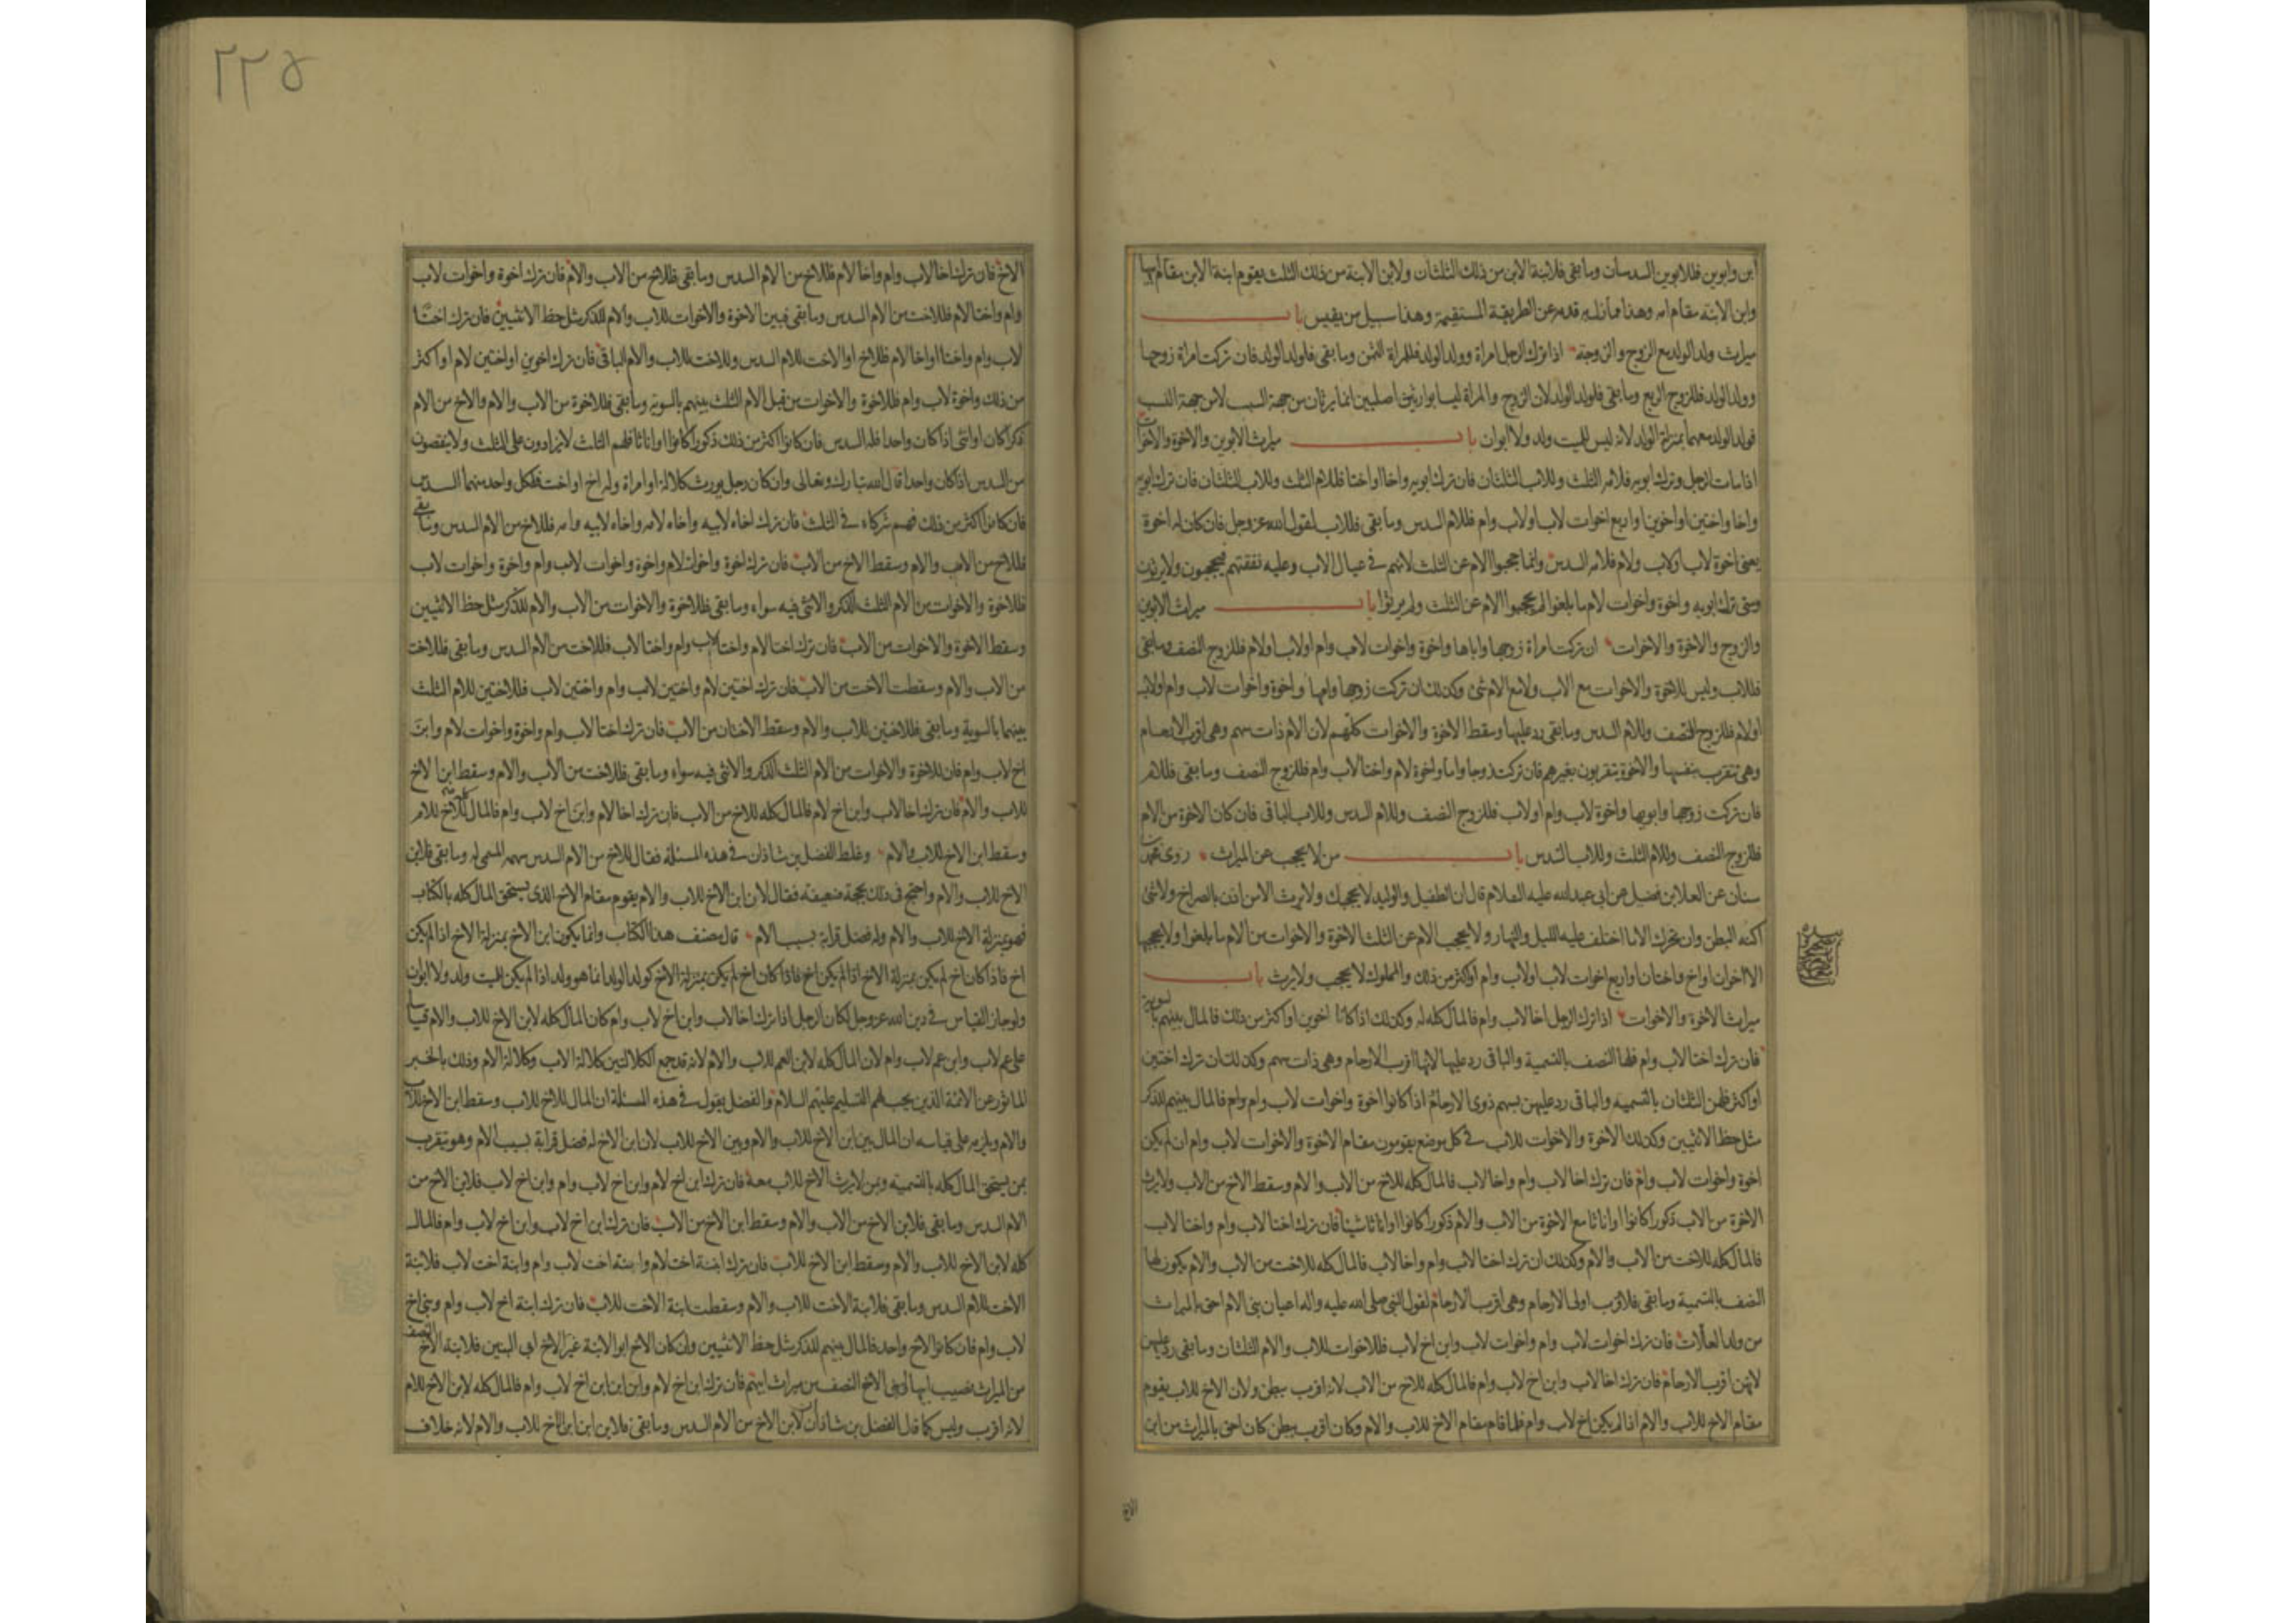 ابن وابوين فللابوين السدسان وما بقى فلابنة الابن من ذلك الثلثان ولابن الابنة من ذلك الثلث يقوم ابنة الابن مقام ابيها
وابن الابنة مقام امه وهذا مما زل به قدمه عن الطريقة المستقيمة وهذا سبيل من يقيس باب
ميراث ولد الولد مع الزوج والزوجة اذا ترك الرجل امراة وولد الولد فللمراة الثمن وما بقى فلولد الولد فان تركت امراة زوجها
وولد الولد فللزوج الربع وما بقى فلولد الولد لان الزوج والمراة ليسا بوارثين اصليين انما يرثان من جهة السبب لا من جهة النسب
فولد الولد معهما بمنزلة الولد لانه ليس للميت ولد ولا ابوان باب ميراث الابوين والاخوة والاخوات
اذا مات الرجل وترك ابويه فلامه الثلث وللاب الثلثان فان ترك ابويه واخا او اختا فللام الثلث وللاب الثلثان فان ترك ابويه
واخا واختين او اخوين او اربع اخوات لاب او لاب وام فللام السدس وما بقى فللاب لقول الله عز وجل فان كان له اخوة
يعنى اخوة لاب او لاب ولام فلامه السدس وانما حجبوا الام عن الثلث لانهم في عيال الاب وعليه نفقتهم فيحجبون ولا يرثون
ومتى ترك ابويه واخوة واخوات لام ما بلغوا لم يحجبوا الام عن الثلث ولم يرثوا باب ميراث الابوين
والزوج والاخوة والاخوات ان تركت امراة زوجها واباها واخوة واخوات لاب وام او لاب او لام فللزوج النصف وما بقى
فللاب وليس للاخوة والاخوات مع الاب ولا مع الام شئ وكذلك ان تركت زوجها وامها واخوة واخوات لاب وام او لاب
او لام فللزوج النصف وللام السدس وما بقى رد عليها وسقط الاخوة والاخوات كلهم لان الام ذات سهم وهى اقرب الارحام
وهى تتقرب بنفسها والاخوة يتقربون بغيرهم فان تركت زوجا واما واخوة لام واختا لاب وام فللزوج النصف وما بقى فللام
فان تركت زوجها وابويها واخوة لاب وام او لاب فللزوج النصف وللام السدس وللاب الباقى فان كان الاخوة من الام
فللزوج النصف وللام الثلث وللاب السدس باب من لا يحجب عن الميراث روى محمد بن
سنان عن العلا بن فضيل عن ابي عبد الله عليه السلام قال ان الطفل والوليد لا يحجبك ولا يرث الا من اذن بالصراخ ولا شئ
اكنه البطن وان تحرك الا ما اختلف عليه الليل والنهار ولا يحجب الام عن الثلث الاخوة والاخوات من الام ما بلغوا ولا يحجبها
الا اخوان او اخ واختان او اربع اخوات لاب او لاب وام او اكثر من ذلك والمملوك لا يحجب ولا يرث باب
ميراث الاخوة والاخوات اذا ترك الرجل اخا لاب وام فالمال كله له وكذلك اذا كانا اخوين او اكثر من ذلك فالمال بينهم بالسوية
فان ترك اختا لاب وام فلها النصف بالتسمية والباقى رد عليها لانها اقرب الارحام وهى ذات سهم وكذلك ان ترك اختين
او اكثر فلهن الثلثان بالتسمية والباقى رد عليهن بسهم ذوى الارحام اذا كانوا اخوة واخوات لاب وام وام فالمال بينهم للذكر
مثل حظ الانثيين وكذلك الاخوة والاخوات للاب في كل موضع يقومون مقام الاخوة والاخوات لاب وام ان لم يكن
اخوة واخوات لاب وام فان ترك اخا لاب وام واخا لاب فالمال كله للاخ من الاب والام وسقط الاخ من الاب ولا يرث
الاخوة من الاب ذكورا كانوا او اناثا مع الاخوة من الاب والام ذكورا كانوا او اناثا شيئا فان ترك اختا لاب وام واختا لاب
فالمال كله للاخت من الاب والام وكذلك ان ترك اختا لاب وام واخا لاب فالمال كله للاخت من الاب والام يكون لها
النصف بالتسمية وما بقى فلاقرب اولى الارحام وهى اقرب الارحام لقول النبى صلى الله عليه واله اعيان بنى الام احق بالميراث
من ولد العلات فان ترك اخوات لاب وام واخوات لاب وابن اخ لاب فللاخوات للاب والام الثلثان وما بقى رد عليهن
لانهن اقرب الارحام فان ترك اخا لاب وابن اخ لاب وام فالمال كله للاخ من الاب لانه اقرب ببطن ولان الاخ للاب يقوم
مقام الاخ للاب والام اذا لم يكن اخ لاب وام فلما قام مقام الاخ للاب والام وكان اقرب ببطن كان احق بالميراث من ابن
الاخ
٢٢٥
الاخ فان ترك اخا لاب وام واخا لام فللاخ من الام السدس وما بقى فللاخ من الاب والام فان ترك اخوة واخوات لاب
وام واختا لام فللاخت من الام السدس وما بقى فبين الاخوة والاخوات للاب والام للذكر مثل حظ الانثيين فان ترك اختا
لاب وام واختا او اخا لام فللاخ او الاخت للام السدس وللاخت للاب والام الباقى فان ترك اخوين او اختين لام او اكثر
من ذلك واخوة لاب وام فللاخوة والاخوات من قبل الام الثلث بينهم بالسوية وما بقى فللاخوة من الاب والام والاخ من الام
ذكرا كان او انثى اذا كان واحدا فله السدس فان كانوا اكثر من ذلك ذكورا كانوا او اناثا فلهم الثلث لا يزادون على الثلث ولا ينقصون
من السدس اذا كان واحدا قال الله تبارك وتعالى وان كان رجل يورث كلالة او امراة وله اخ او اخت فلكل واحد منهما السدس
فان كانوا اكثر من ذلك فهم شركاء في الثلث فان ترك اخاه لابيه واخاه لامه واخاه لابيه وامه فللاخ من الام السدس وما بقى
فللاخ من الاب والام وسقط الاخ من الاب فان ترك اخوة واخوات لام واخوة واخوات لاب وام واخوة واخوات لاب
فللاخوة والاخوات من الام الثلث الذكر والانثى فيه سواء وما بقى فللاخوة والاخوات من الاب والام للذكر مثل حظ الانثيين
وسقط الاخوة والاخوات من الاب فان ترك اختا لام واختا لاب وام واختا لاب فللاخت من الام السدس وما بقى فللاخت
من الاب والام وسقطت الاخت من الاب فان ترك اختين لام واختين لاب وام واختين لاب فللاختين للام الثلث
بينهما بالسوية وما بقى فللاختين للاب والام وسقط الاختان من الاب فان ترك اختا لاب وام واخوة واخوات لام وابن
اخ لاب وام فان للاخوة والاخوات من الام الثلث الذكر والانثى فيه سواء وما بقى فللاخت من الاب والام وسقط ابن الاخ
للاب والام فان ترك اخا لاب وابن اخ لام فالمال كله للاخ من الاب فان ترك اخا لام وابن اخ لاب وام فالمال كله للاخ للام
وسقط ابن الاخ للاب والام وغلط الفضل بن شاذان في هذه المسئلة فقال للاخ من الام السدس سهمه المسمى له وما بقى فلابن
الاخ للاب والام واحتج في ذلك بحجة ضعيفة فقال لان ابن الاخ للاب والام يقوم مقام الاخ الذى يستحق المال كله بالكتاب
فهو بمنزلة الاخ للاب والام وله فضل قرابة بسبب الام قال مصنف هذا الكتاب وانما يكون ابن الاخ بمنزلة الاخ اذا لم يكن
اخ فاذا كان اخ لم يكن بمنزلة الاخ اذا لم يكن اخ فاذا كان اخ لم يكن بمنزلة الاخ كولد الولد انما هو ولد اذا لم يكن للميت ولد ولا ابوان
ولو جاز القياس في دين الله عز وجل لكان الرجل اذا ترك اخا لاب وابن اخ لاب وام كان المال كله لابن الاخ للاب والام قياسا
على عم لاب وابن عم لاب وام لان المال كله لابن العم للاب والام لانه قد جمع الكلالتين كلالة الاب وكلالة الام وذلك بالخبر
الماثور عن الائمة الذين يجب لهم التسليم عليهم السلام والفضل يقول في هذه المسئلة ان المال للاخ للاب وسقط ابن الاخ للاب
والام ويلزمه على قياسه ان المال بين ابن الاخ للاب والام وبين الاخ للاب لان ابن الاخ له فضل قرابة بسبب الام وهو يتقرب
بمن يستحق المال كله بالتسمية وبمن لا يرث الاخ للاب معه فان ترك ابن اخ لام وابن اخ لاب وام وابن اخ لاب فلابن الاخ من
الام السدس وما بقى فلابن الاخ من الاب والام وسقط ابن الاخ من الاب فان ترك ابن اخ لاب وابن اخ لاب وام فالمال
كله لابن الاخ للاب والام وسقط ابن الاخ للاب فان ترك ابنة اخت لام وابنة اخت لاب وام وابنة اخت لاب فلابنة
الاخت للام السدس وما بقى فلابنة الاخت للاب والام وسقطت ابنة الاخت للاب فان ترك ابنة اخ لاب وام وبنى اخ
لاب وام فان كانوا لاخ واحد فالمال بينهم للذكر مثل حظ الانثيين وان كان الاخ ابو الابنة غير الاخ ابي البنين فلابنة الاخ النصف
من الميراث نصيب ابيها ولبنى الاخ النصف من ميراث ابيهم فان ترك ابن اخ لام وابن ابن ابن اخ لاب وام فالمال كله لابن الاخ للام
لانه اقرب وليس كما قال الفضل بن شاذان لابن الاخ من الام السدس وما بقى فلابن ابن ابن الاخ للاب والام لانه خلاف